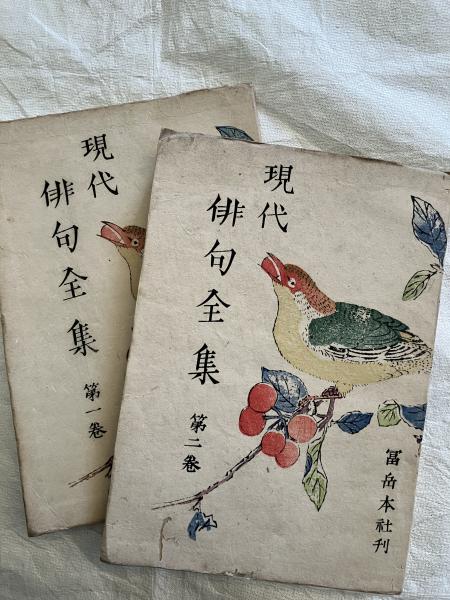 現代
俳句全集
第一巻
現代
俳句全集
第二巻
冨岳本社刊